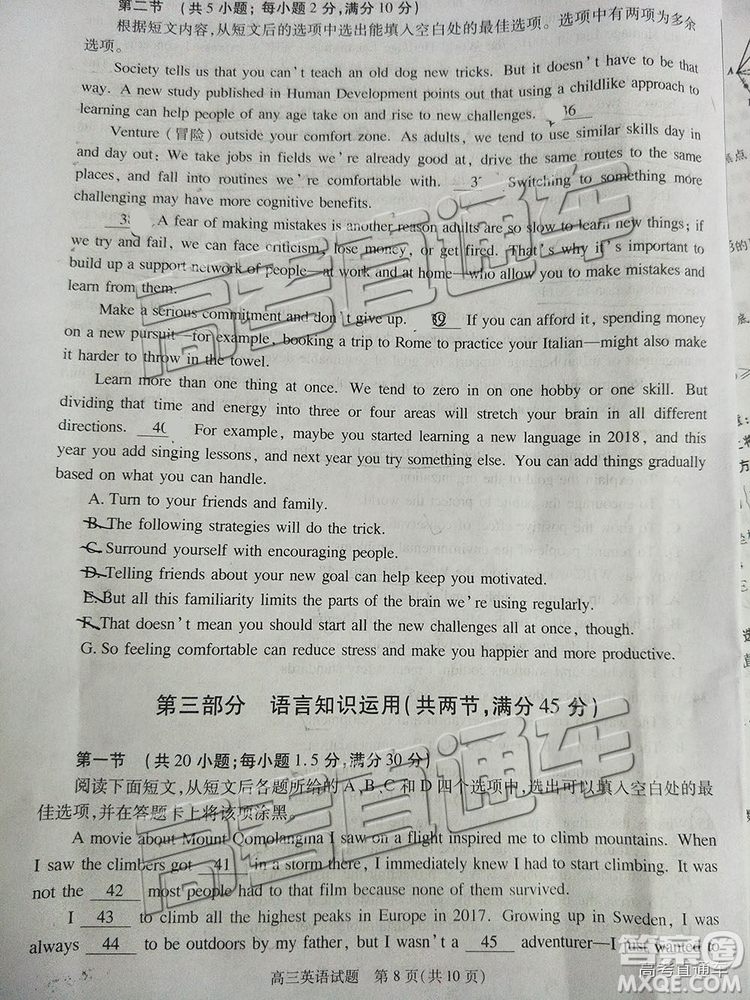 第二节 (共5小题;每小题2分,满分10分)
根据短文内容,从短文后的选项中选出能填入空白处的最佳选项。选项中有两项为多余
选项。
Society tells us that you can't teach an old dog new tricks. But it doesn't have to be that
way. A new study published in Human Development points out that using a childlike approach to
learning can help people of any age take on and rise to new challenges. 36
Venture (冒险) outside your comfort zone. As adults, we tend to use similar skills day in
and day out: We take jobs in fields we're already good at, drive the same routes to the same
places, and fall into routines we're comfortable with. 3 Switching to something more
challenging may have more cognitive benefits.
38 A fear of making mistakes is another reason adults are so slow to learn new things; if
we try and fail, we can face criticism, lose money, or get fired. That's why it's important to
build up a support network of people—at work and at home—who allow you to make mistakes and
learn from them.
Make a serious commitment and don't give up. 39 If you can afford it, spending money
on a new pursuit—for example, booking a trip to Rome to practice your Italian—might also make
it harder to throw in the towel.
Learn more than one thing at once. We tend to zero in on one hobby or one skill. But
dividing that time and energy into three or four areas will stretch your brain in all different
directions. 40 For example, maybe you started learning a new language in 2018, and this
year you add singing lessons, and next year you try something else. You can add things gradually
based on what you can handle.
A. Turn to your friends and family.
B. The following strategies will do the trick.
C. Surround yourself with encouraging people.
D. Telling friends about your new goal can help keep you motivated.
E. But all this familiarity limits the parts of the brain we're using regularly.
F. That doesn't mean you should start all the new challenges all at once, though.
G. So feeling comfortable can reduce stress and make you happier and more productive.
第三部分 语言知识运用(共两节,满分45分)
第一节 (共20小题;每小题1.5分,满分30分)
阅读下面短文,从短文后各题所给的A、B、C和D四个选项中,选出可以填入空白处的最
佳选项,并在答题卡上将该项涂黑。
A movie about Mount Qomolangma I saw on a flight inspired me to climb mountains. When
I saw the climbers got 41 in a storm there, I immediately knew I had to start climbing. It was
not the 42 most people had to that film because none of them survived.
I 43 to climb all the highest peaks in Europe in 2017. Growing up in Sweden, I was
always 44 to be outdoors by my father, but I wasn't a 45 adventurer—I just wanted to
高三英语试题 第8页(共10页)
高考直通车
高考直通车
高考直通车
答案圈
MXQE.COM